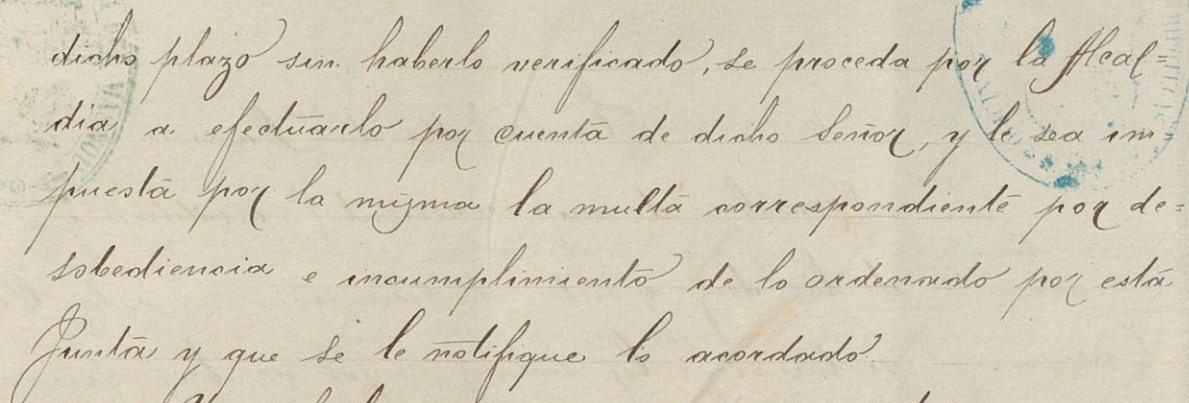 dicho plazo sin haberlo verificado, se proceda por la Alcal=
dia a efectuarlo por cuenta de dicho Señor, y le sea im=
puesta por la misma la multa correspondiente por de=
sobediencia e incumplimiento de lo ordenado por esta
Junta y que se le notifique lo acordado.